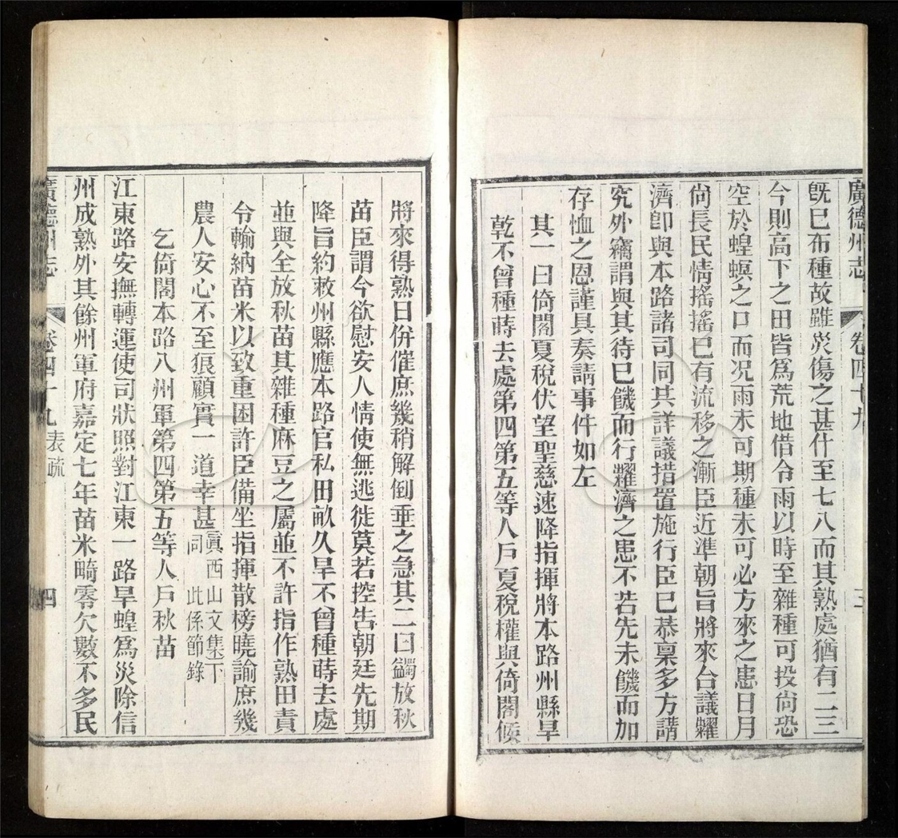 廣德州志 卷四十九 三
既已布種故雖災傷之甚什至七八而其熟處猶有二三
今則高下之田皆為荒地借令雨以時至雜種可投尙恐
空於蝗螟之口而况雨未可期種未可必方來之患日月
尙長民情搖搖已有流移之漸臣近準朝旨將來合議糶
濟卽與本路諸司同其詳議措置施行臣已恭稟多方講
究外竊謂與其待已饑而行糶濟之患不若先未饑而加
存恤之恩謹具奏請事件如左
其一曰倚閣夏稅伏望聖慈速降指揮將本路州縣旱
乾不曾種蒔去處第四第五等人戶夏稅權與倚閣候
將來得熟日併催庶幾稍解倒垂之急其二曰蠲放秋
苗臣謂今欲慰安人情使無逃徙莫若控吿朝廷先期
降旨約敕州縣應本路官私田畝久旱不曾種蒔去處
並與全放秋苗其雜種麻豆之屬並不許指作熟田責
令輸納苗米以致重困許臣備坐指揮散榜曉諭庶幾
農人安心不至狼顧實一道幸甚 眞西山文集下詞此係節錄
乞倚閣本路八州軍第四第五等人戶秋苗
江東路安撫轉運使司狀照對江東一路旱蝗爲災除信
州成熟外其餘州軍府嘉定七年苗米畸零欠數不多民
廣德州志 卷四十九 表疏 四